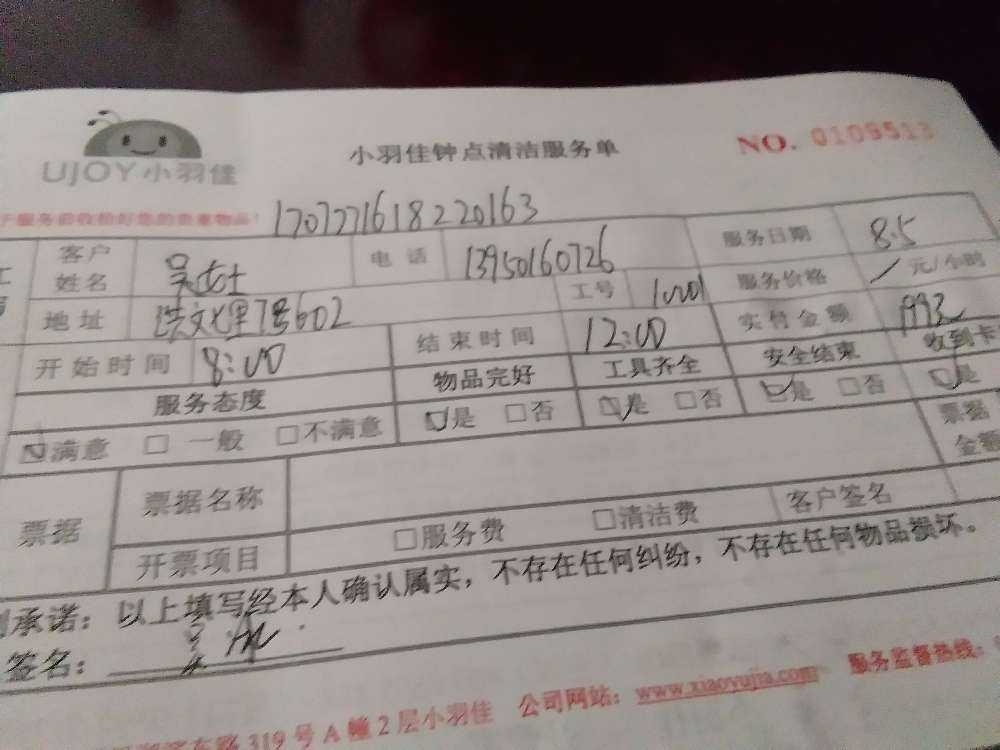 UJOY小羽佳
小羽佳钟点清洁服务单
NO. 0109513
1707271618220163
客户姓名 电话 13950160726 服务日期 8.5
地址 洪文七里78号602 工号 服务价格 元/小时
开始时间 8:00 结束时间 12:00 实付金额 193
服务态度 物品完好 工具齐全 安全结束 收到卡
☑满意 □一般 □不满意 ☑是 □否 ☑是 □否 ☑是 □否 ☑是
票据 票据名称 票据金额
开票项目 □服务费 □清洁费 客户签名
承诺：以上填写经本人确认属实，不存在任何纠纷，不存在任何物品损坏。
签名：
东路319号A幢2层小羽佳 公司网站：www.xiaoyujia.com 服务监督热线：